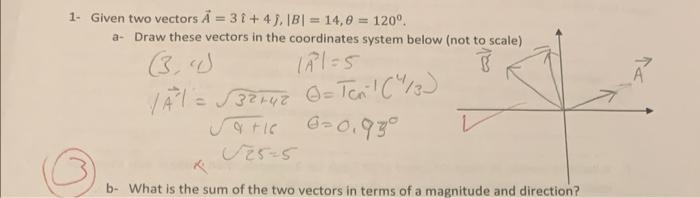 1- Given two vectors A⃗ = 3 î + 4 ĵ, |B| = 14, θ = 120⁰.
a- Draw these vectors in the coordinates system below (not to scale)
(3, 4) |A⃗| = 5 B⃗ A⃗
|A⃗| = √3²+4² θ = Tan⁻¹(4/3)
√9+16 θ = 0.93°
√25 = 5
3
b- What is the sum of the two vectors in terms of a magnitude and direction?